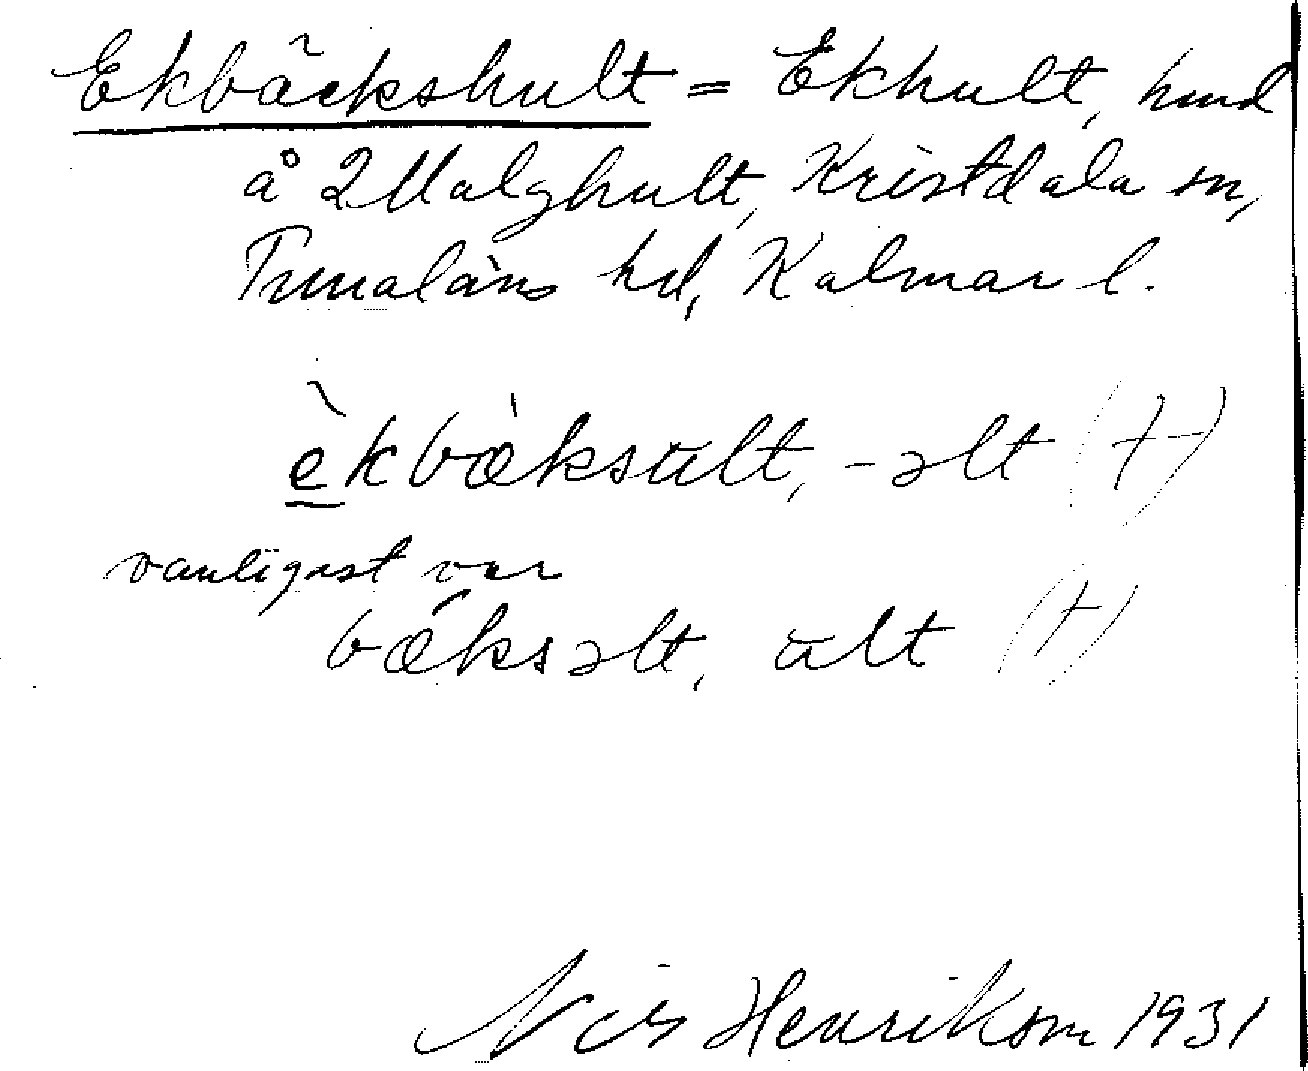 Ekbäckshult = Ekhult, hmd
å 2 Malghult, Kristdala sn,
Tunaläns hd, Kalmar l.
èkbæ̀ksult, -əlt (+)
vanligast var
bǽksəlt, ult (+)
Nils Henrikson 1931